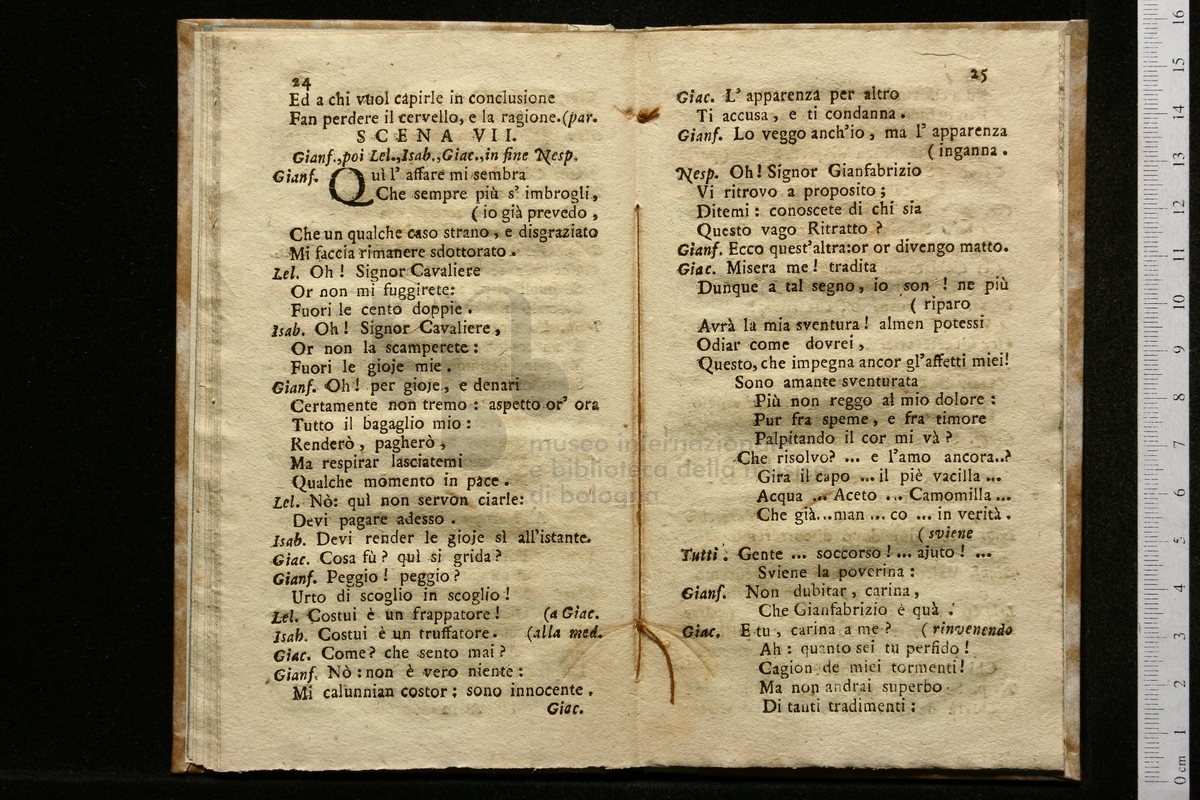 24
Ed a chi vuol capirle in conclusione
Fan perdere il cervello, e la ragione. (par.
SCENA VII.
Gianf., poi Lel., Isab., Giac., in fine Nesp.
Gianf. Quì l' affare mi sembra
Che sempre più s' imbrogli,
( io già prevedo ,
Che un qualche caso strano , e disgraziato
Mi faccia rimanere sdottorato .
Lel. Oh ! Signor Cavaliere
Or non mi fuggirete:
Fuori le cento doppie .
Isab. Oh ! Signor Cavaliere ,
Or non la scamperete :
Fuori le gioje mie .
Gianf. Oh ! per gioje , e denari
Certamente non tremo : aspetto or' ora
Tutto il bagaglio mio :
Renderò , pagherò ,
Ma respirar lasciatemi
Qualche momento in pace .
Lel. Nò: quì non servon ciarle:
Devi pagare adesso .
Isab. Devi render le gioje sì all'istante.
Giac. Cosa fù ? quì si grida ?
Gianf. Peggio ! peggio ?
Urto di scoglio in scoglio !
Lel. Costui è un frappatore ! (a Giac.
Isab. Costui è un truffatore. (alla med.
Giac. Come ? che sento mai ?
Gianf. Nò : non è vero niente :
Mi calunnian costor ; sono innocente .
Giac.
25
Giac. L' apparenza per altro
Ti accusa , e ti condanna .
Gianf. Lo veggo anch'io , ma l' apparenza
( inganna .
Nesp. Oh ! Signor Gianfabrizio
Vi ritrovo a proposito ;
Ditemi : conoscete di chi sia
Questo vago Ritratto ?
Gianf. Ecco quest'altra: or or divengo matto.
Giac. Misera me ! tradita
Dunque a tal segno , io son ! ne più
( riparo
Avrà la mia sventura ! almen potessi
Odiar come dovrei ,
Questo, che impegna ancor gl'affetti miei!
Sono amante sventurata
Più non reggo al mio dolore :
Pur fra speme , e fra timore
Palpitando il cor mi và ?
Che risolvo? ... e l'amo ancora..?
Gira il capo ... il piè vacilla ...
Acqua ... Aceto ... Camomilla ...
Che già...man ... co ... in verità .
( sviene
Tutti . Gente ... soccorso ! ... ajuto ! ...
Sviene la poverina :
Gianf. Non dubitar , carina ,
Che Gianfabrizio è quà .
Giac. E tu , carina a me ? ( rinvenendo
Ah : quanto sei tu perfido !
Cagion de miei tormenti !
Ma non andrai superbo
Di tanti tradimenti :
museo internazion
e biblioteca della musica
di bologna
0 cm 1 2 3 4 5 6 7 8 9 10 11 12 13 14 15 16